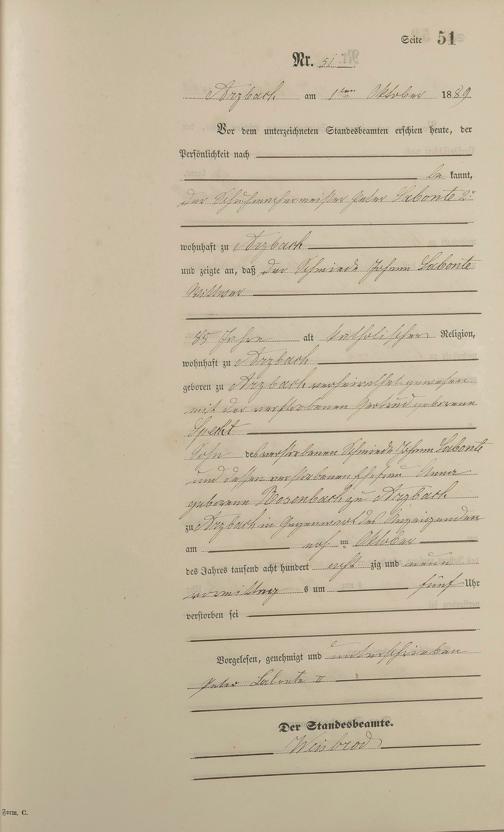 Seite 51
Nr. 51
Arzbach am 1ten Oktober 1889
Vor dem unterzeichneten Standesbeamten erschien heute, der
Persönlichkeit nach
be kannt,
der Schuhmachermeister Peter Labonte 2r
wohnhaft zu Arzbach
und zeigte an, daß der Schmiede Johann Labonte
Wittwer
85 Jahre alt katholischer Religion,
wohnhaft zu Arzbach
geboren zu Arzbach verheirathet gewesen
mit der verstorbenen Gertrud geborene
Specht
Sohn des verstorbenen Schmiede Johann Labonte
und dessen verstorbenen Ehefrau Anna
geborene Rosenbach zu Arzbach
zu Arzbach in Gegenwart des Anzeigenden
am ten Oktober
des Jahres tausend acht hundert acht zig und neun
vormittags um fünf Uhr
verstorben sei
Vorgelesen, genehmigt und unterschrieben
Peter Labonte II
Der Standesbeamte.
Weisbrod
Form. C.